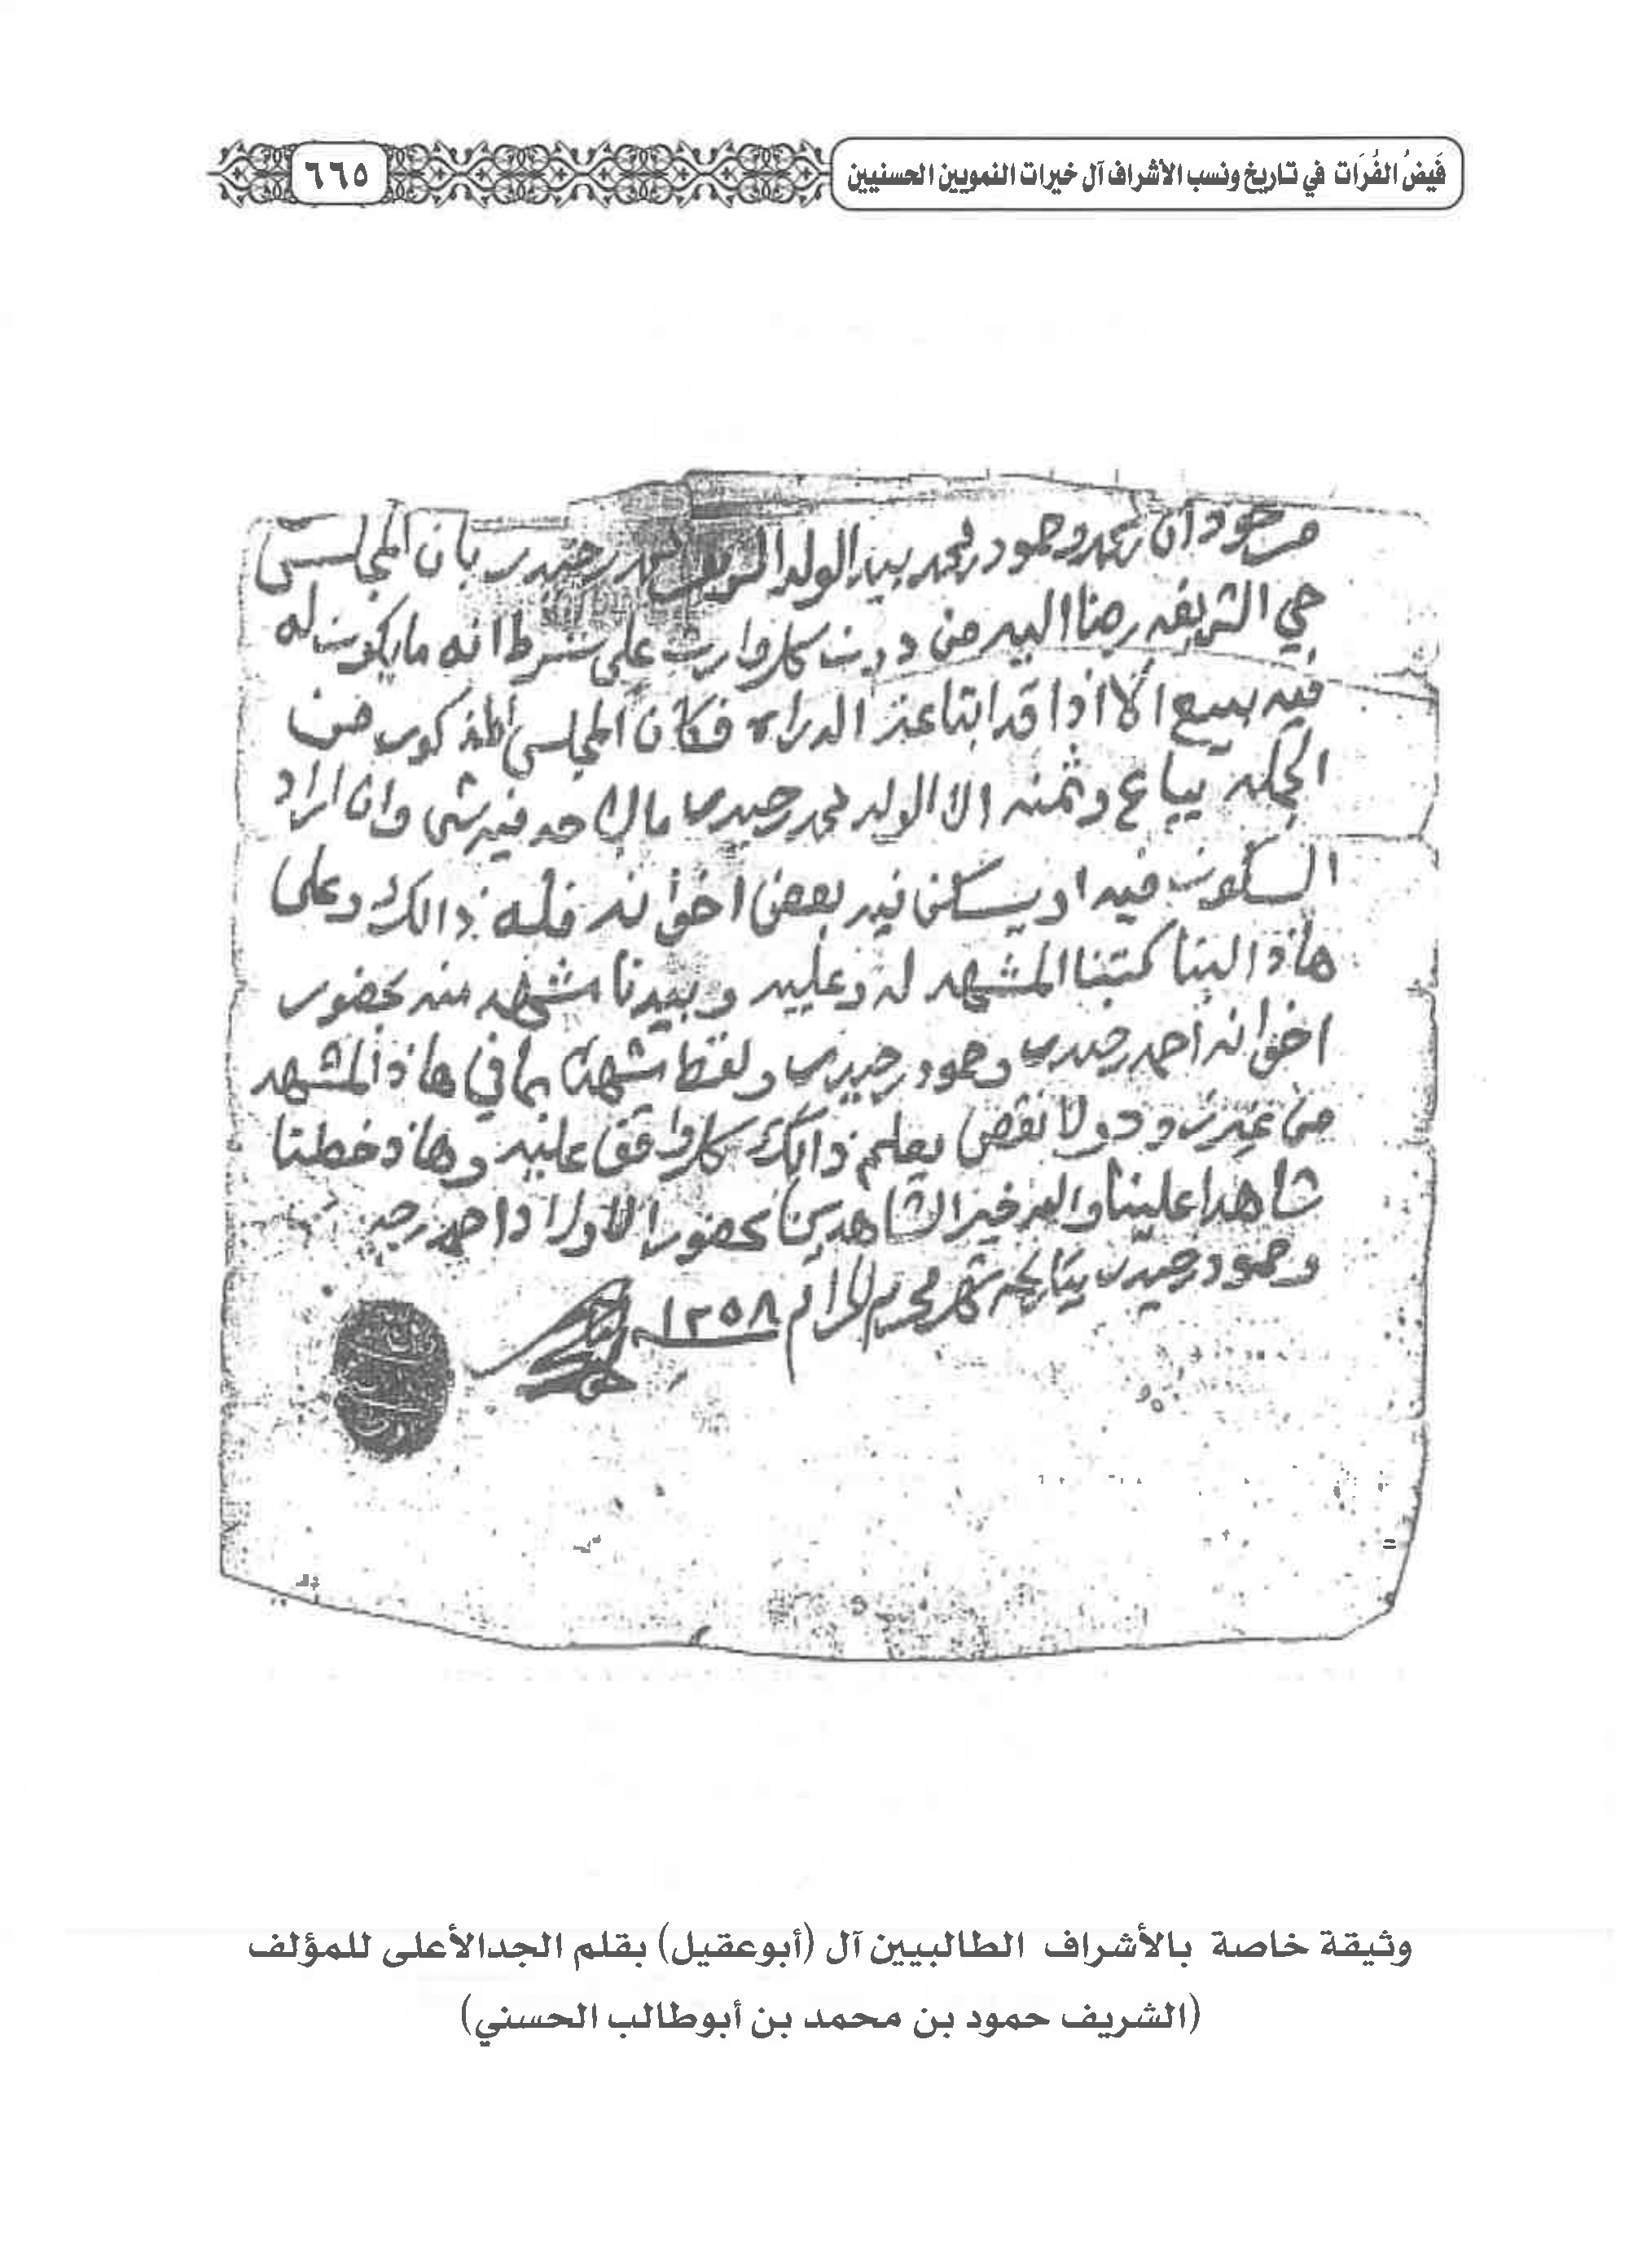 فَيضُ الفُرَات في تاريخ ونسب الأشراف آل خيرات النمويين الحسنيين
٦٦٥
محمد وحمود محمد بيد الولد الشريف محمد حيدر بان المجلس
الشريفه رضا اليه من دون كل وارث على شرط انه مايكون له
فيه بيع الا اذا قد ابتاعة الدراه فكان المجلس المذكور من
الجمله يباع وثمنه الا الولد محمد حيدر مالاحد فيه شي وان اراد
السكون فيه او يسكن فيه بعض اخوانه فله ذالك وعلى
هاذا البنا كتبنا المشهد له وعليه وبيدنا مشهد منه بحضور
اخوانه أحمد حيدر وحمود حيدر ولفظ شهدة بما في هاذ المشهد
من غير ولا نقض يعلم ذالك كل واقف عليه وهاذ خطنا
شاهدا علينا والله خير الشاهدين بحضور الاولاد احمد حيدر
وحمود حيدر بتاريخه شهر محرم الحرام ١٢٥٨
وثيقة خاصة بالأشراف الطالبيين آل (أبوعقيل) بقلم الجدالأعلى للمؤلف
(الشريف حمود بن محمد بن أبوطالب الحسني)